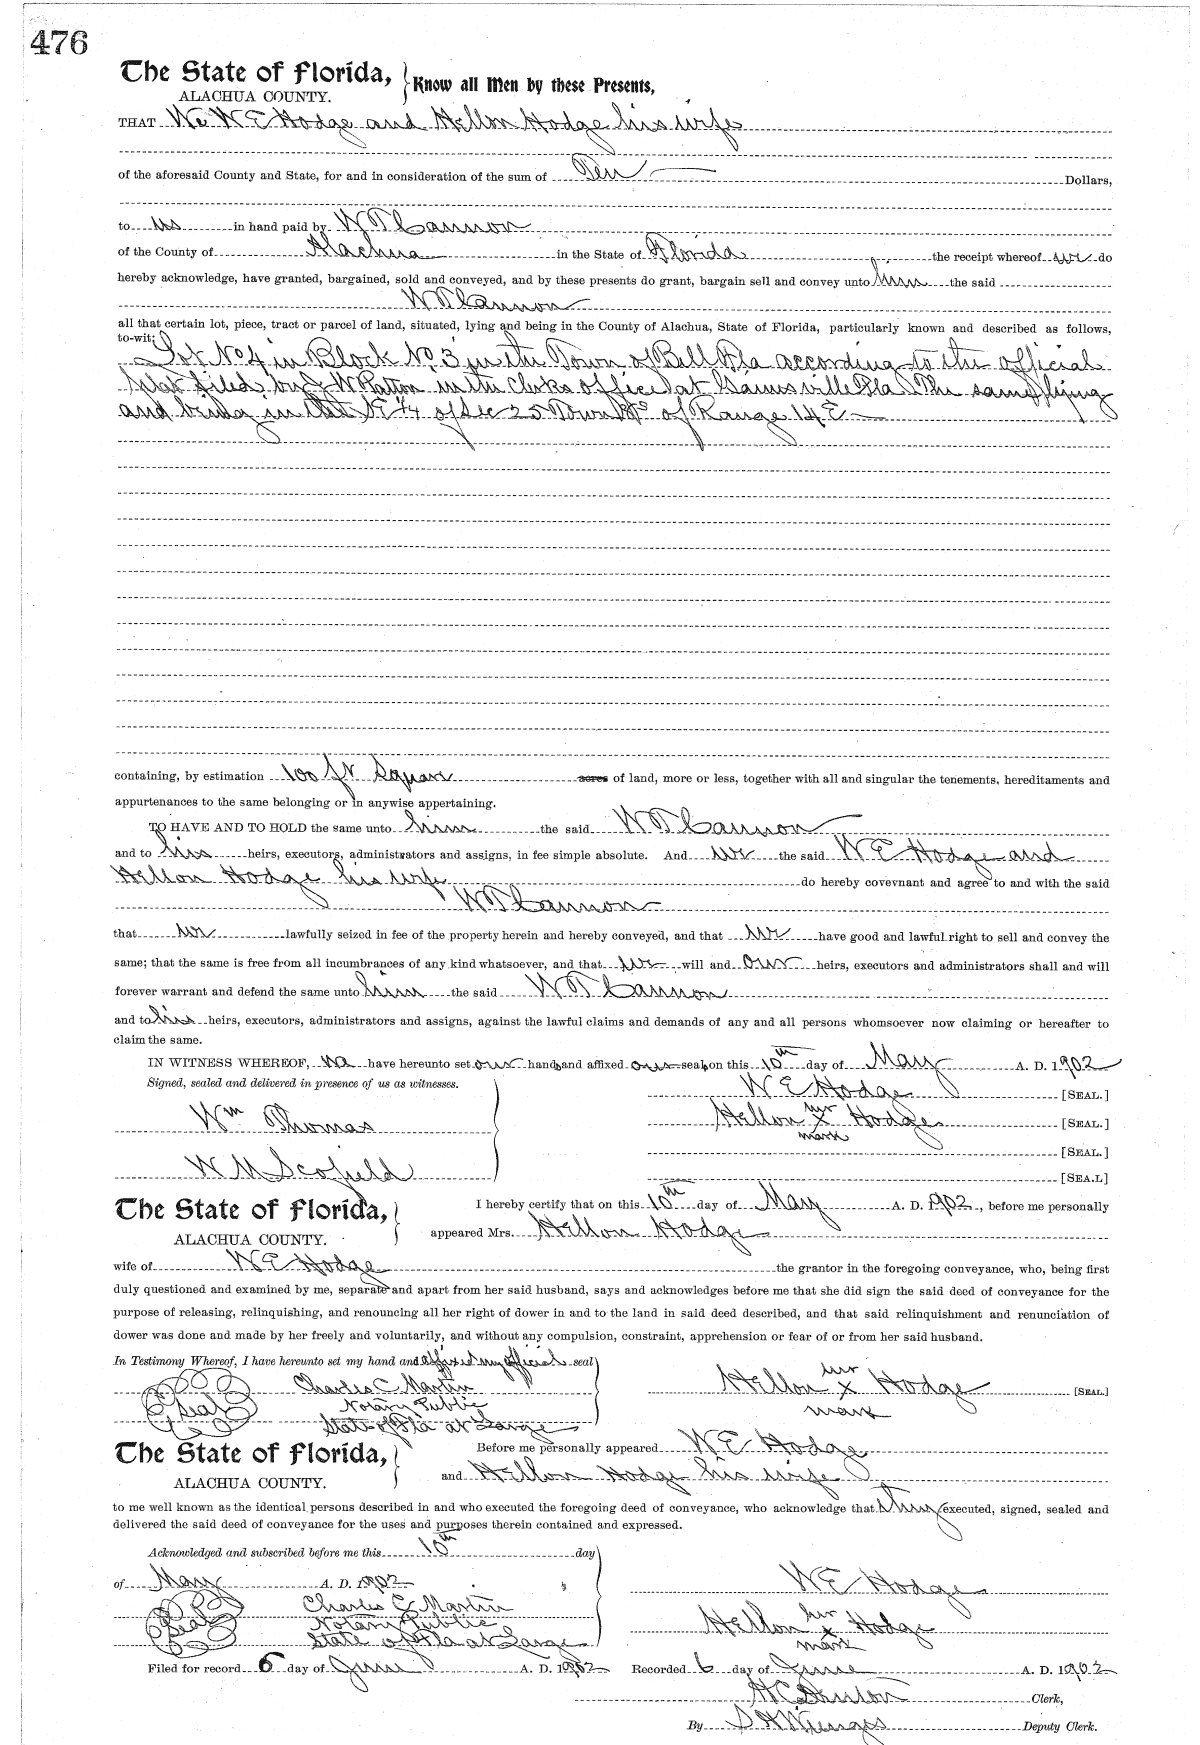 476
The State of Florida, Know all Men by these Presents,
ALACHUA COUNTY.
THAT We W E Hodge and Hellon Hodge his wife
of the aforesaid County and State, for and in consideration of the sum of Ten Dollars,
to us in hand paid by W T Cannon
of the County of Alachua in the State of Florida the receipt whereof we do
hereby acknowledge, have granted, bargained, sold and conveyed, and by these presents do grant, bargain sell and convey unto him the said
W T Cannon
all that certain lot, piece, tract or parcel of land, situated, lying and being in the County of Alachua, State of Florida, particularly known and described as follows,
to-wit:
Lot No 4 in Block No 3 in the Town of Bell Fla according to the official
plat filed by J W Patton in the Clerks office at Gainsville Fla. The same lying
and being in the 1/4 of Sec 25 Town of Range 14 E
containing, by estimation 100 ft Square acres of land, more or less, together with all and singular the tenements, hereditaments and
appurtenances to the same belonging or in anywise appertaining.
TO HAVE AND TO HOLD the same unto him the said W T Cannon
and to his heirs, executors, administrators and assigns, in fee simple absolute. And we the said W E Hodge and
Hellon Hodge his wife do hereby covevnant and agree to and with the said
W T Cannon
that we lawfully seized in fee of the property herein and hereby conveyed, and that we have good and lawful right to sell and convey the
same; that the same is free from all incumbrances of any kind whatsoever, and that we will and our heirs, executors and administrators shall and will
forever warrant and defend the same unto him the said W T Cannon
and to his heirs, executors, administrators and assigns, against the lawful claims and demands of any and all persons whomsoever now claiming or hereafter to
claim the same.
IN WITNESS WHEREOF, we have hereunto set our hands and affixed our seals on this 10th day of May A. D. 1902
Signed, sealed and delivered in presence of us as witnesses.
W E Hodge [SEAL.]
Wm Thomas
Hellon her x mark Hodge [SEAL.]
[SEAL.]
W M Scofield
[SEA.L]
The State of Florida, I hereby certify that on this 10th day of May A. D. 1902, before me personally
ALACHUA COUNTY. appeared Mrs. Hellon Hodge
wife of W E Hodge the grantor in the foregoing conveyance, who, being first
duly questioned and examined by me, separate and apart from her said husband, says and acknowledges before me that she did sign the said deed of conveyance for the
purpose of releasing, relinquishing, and renouncing all her right of dower in and to the land in said deed described, and that said relinquishment and renunciation of
dower was done and made by her freely and voluntarily, and without any compulsion, constraint, apprehension or fear of or from her said husband.
In Testimony Whereof, I have hereunto set my hand and affixed my official seal
Seal Charles C. Martin
Notary Public
State of Fla at Large
Hellon her x mark Hodge [SEAL]
The State of Florida, Before me personally appeared W E Hodge
ALACHUA COUNTY. and Hellon Hodge his wife
to me well known as the identical persons described in and who executed the foregoing deed of conveyance, who acknowledge that they executed, signed, sealed and
delivered the said deed of conveyance for the uses and purposes therein contained and expressed.
Acknowledged and subscribed before me this 10th day
of May A. D. 1902
W E Hodge
Seal Charles C. Martin
Notary Public
State of Fla at Large
Hellon her x mark Hodge
Filed for record 6 day of June A. D. 1902 Recorded 6 day of June A. D. 1902
Clerk,
By Deputy Clerk.